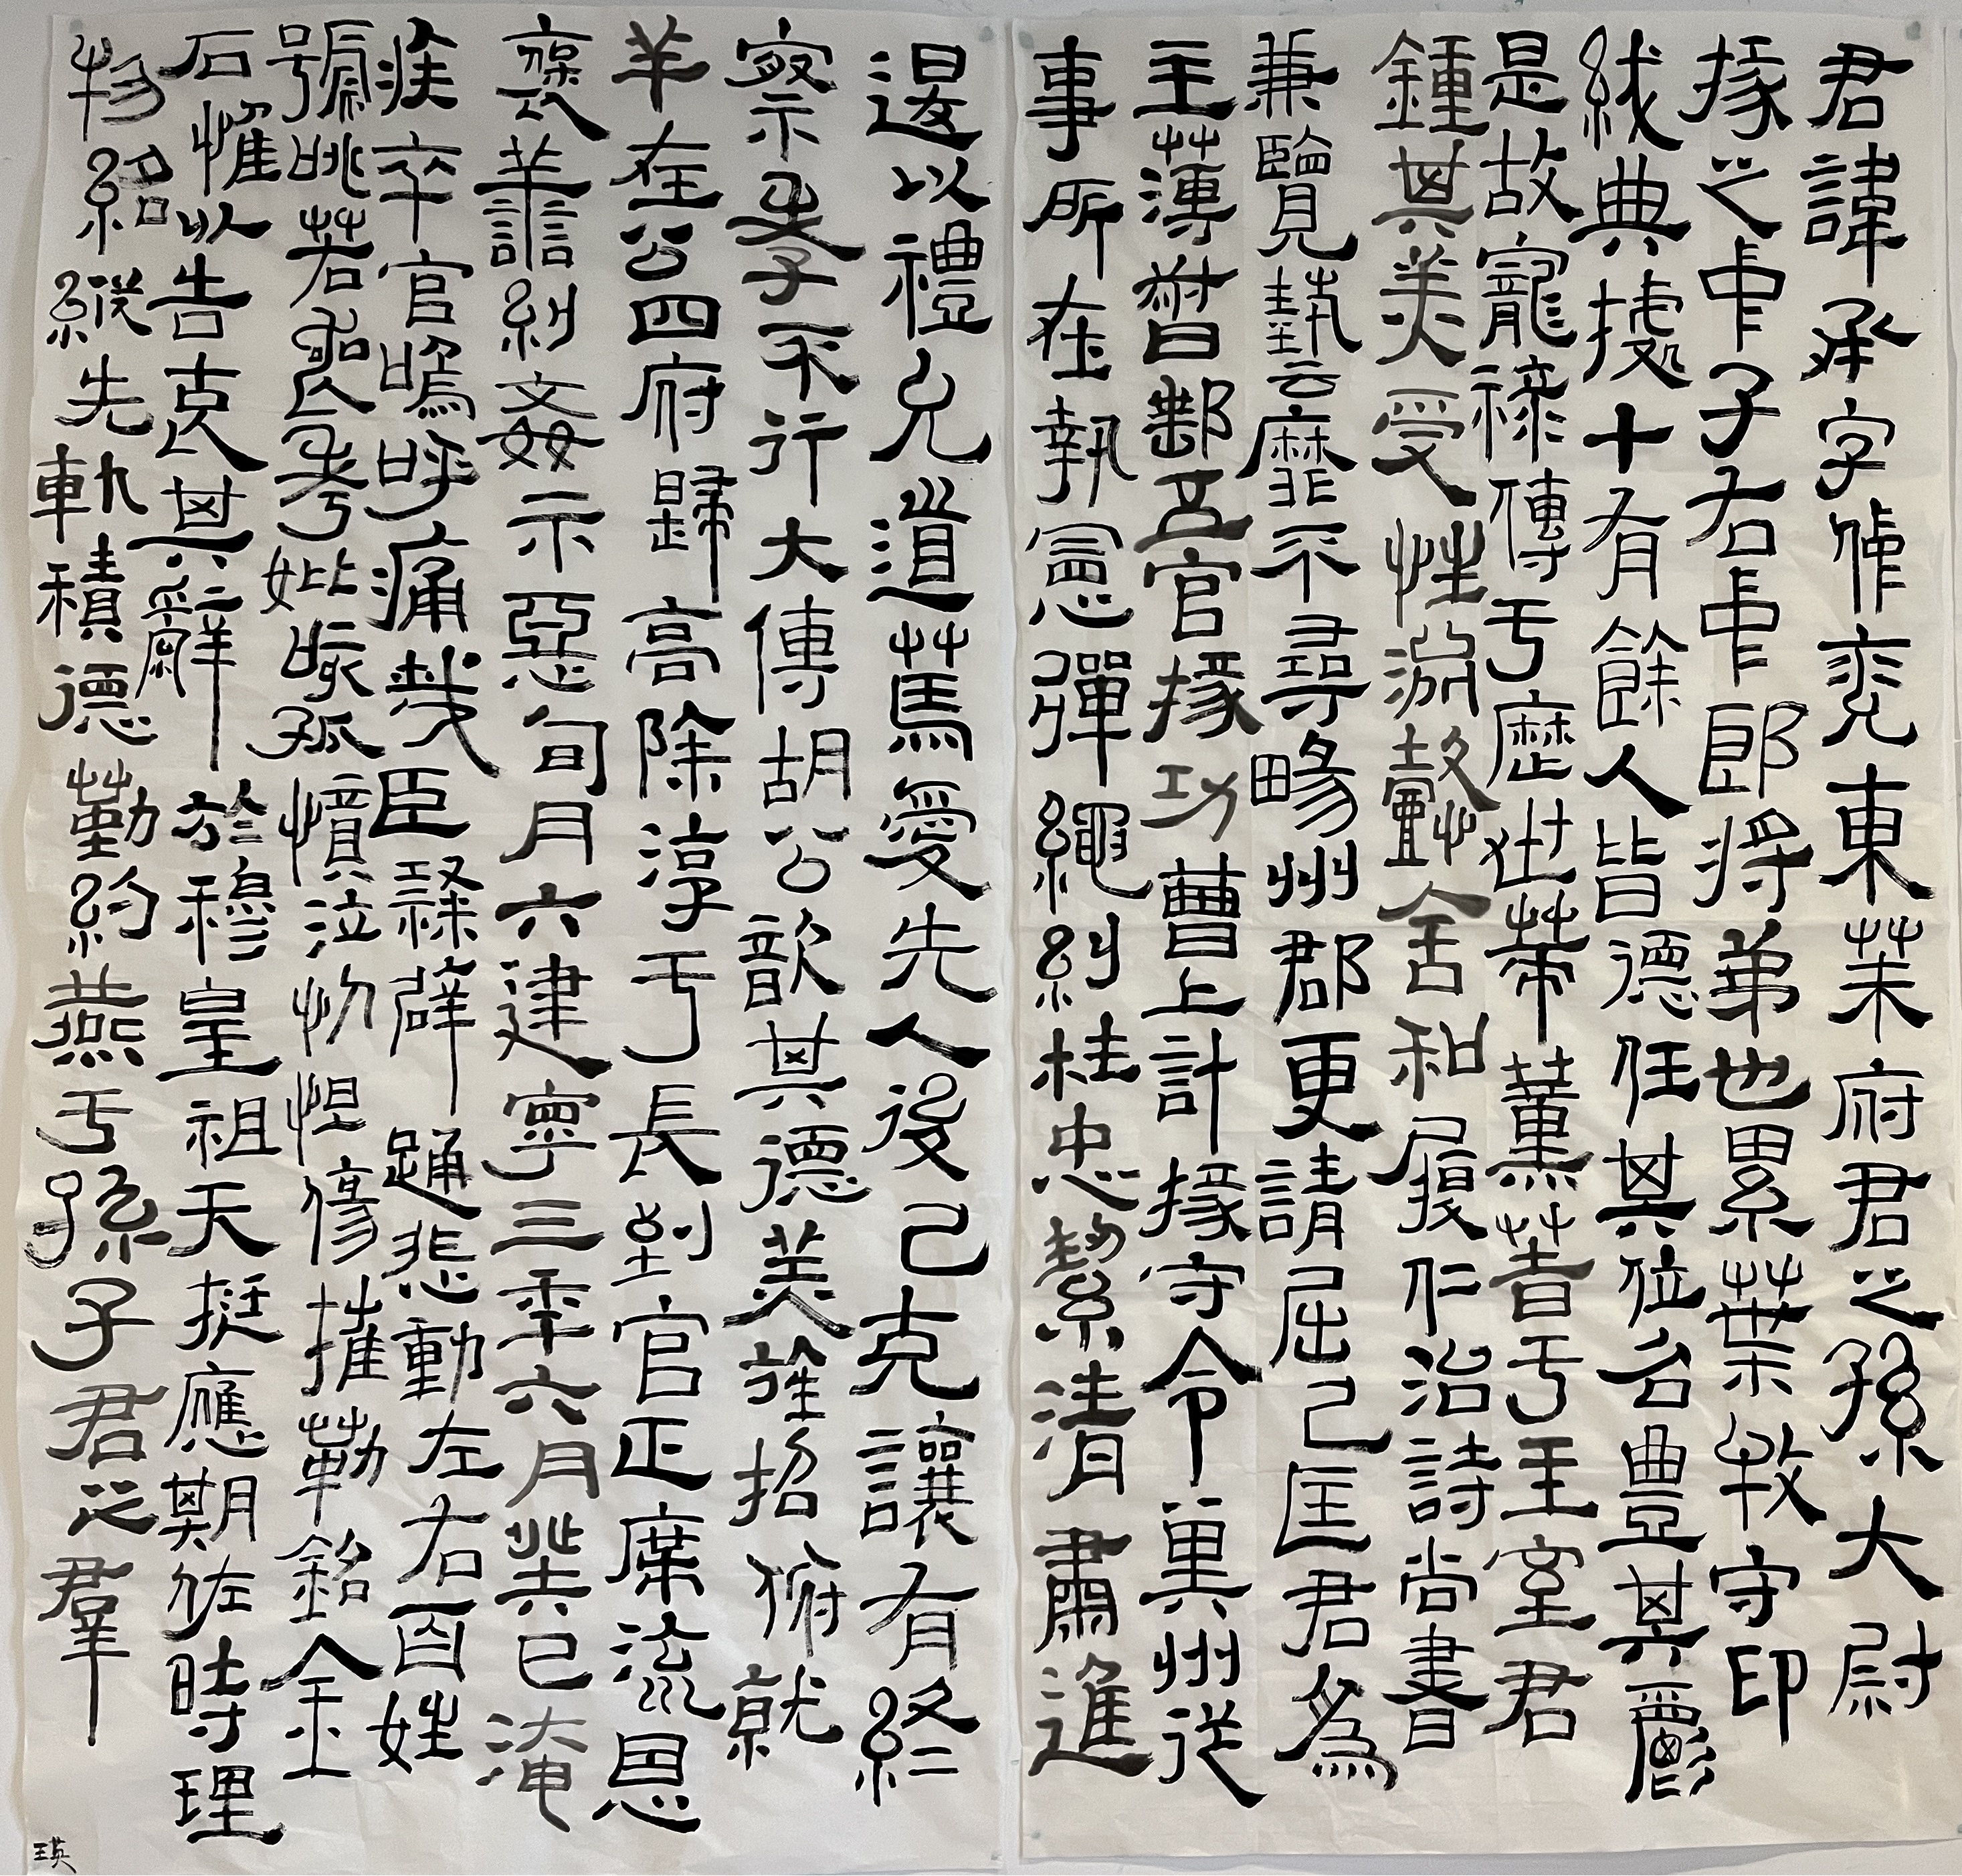 君諱承字仲兖東萊府君之孫大尉
掾之中子右中郎將弟也累葉牧守印
紱典據十有餘人皆德任其位名豊其爵
是故寵祿傳于歷世策薰著于王室君
鍾其美受性淵懿含和履仁治詩尚書
兼覽藝靡不尋暢州郡更請屈己匡君為
主薄督郵五官掾功曹上計掾守令冀州從
事所在執憲彈繩糾枉忠絜清肅進
退以禮允道篤愛先人後己克讓有終
察孝不行大傅胡公歆其德美旌招俯就
羊在公四府歸高除淳于長到官正席流恩
褒善糾姦示惡旬月六建寧三年六月癸巳淹
疾卒官嗚呼痛哉臣隸辟踊悲動左右百姓
號咷若喪考妣咳孤憤泣忉怛傷摧勒銘金
石惟以告哀其辭於穆皇祖天挺應期佐時理
物紹縱先軌積德勤約燕于孫子君之羣
瑛